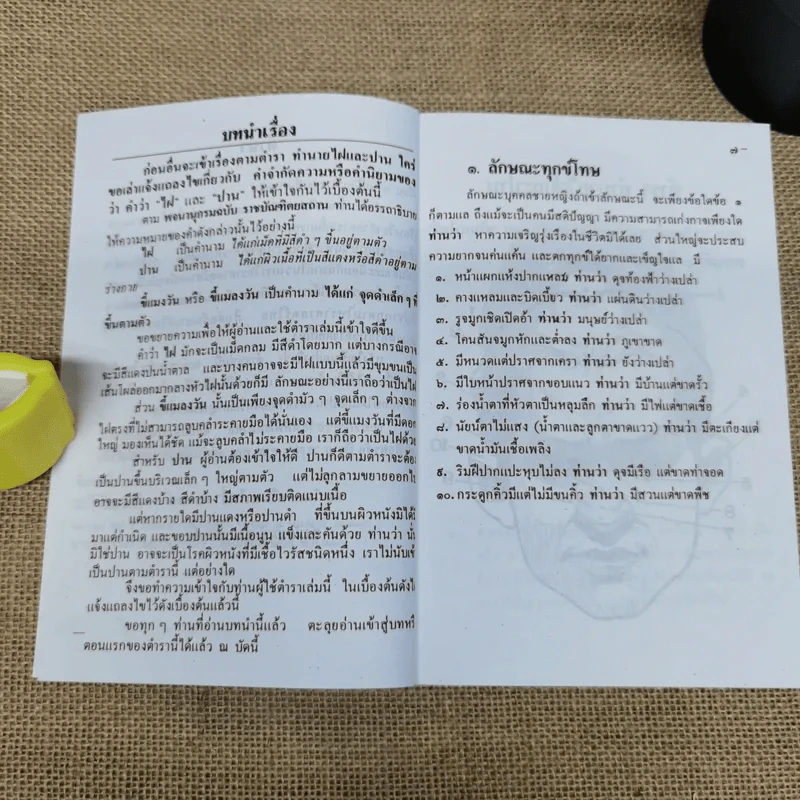 บทนำเรื่อง
ก่อนอื่นจะเข้าเรื่องตามตำรา ทำนายไฝและปาน ใคร่
ขอเล่าแจ้งแถลงไขเกี่ยวกับ คำจำกัดความหรือคำนิยามของ
ว่า คำว่า "ไฝ" และ "ปาน" ให้เข้าใจกันไว้เบื้องต้นนี้
ตาม พจนานุกรมฉบับ ราชบัณฑิตยสถาน ท่านได้อรรถาธิบาย
ให้ความหมายของคำดังกล่าวนั้นไว้อย่างนี้
ไฝ เป็นคำนาม ได้แก่เม็ดที่มีสีดำ ๆ ขึ้นอยู่ตามตัว
ปาน เป็นคำนาม ได้แก่ผิวเนื้อที่เป็นสีแดงหรือสีดำอยู่ตาม
ร่างกาย
ขี้แมงวัน หรือ ขี้แมลงวัน เป็นคำนาม ได้แก่ จุดดำเล็กๆ
ขึ้นตามตัว
ขอขยายความเพื่อให้ผู้อ่านและใช้ตำราเล่มนี้เข้าใจดีขึ้น
คำว่า ไฝ มักจะเป็นเม็ดกลม มีสีดำโดยมาก แต่บางกรณีอาจ
จะมีสีแดงปนน้ำตาล และบางคนอาจจะมีไฝแบบนี้แล้วมีขุมขนเป็น
เส้นโผล่ออกมากลางหัวไฝนั้นด้วยก็มี ลักษณะอย่างนี้เราถือว่าเป็นไฝ
ส่วน ขี้แมลงวัน นั้นเป็นเพียงจุดดำมัว ๆ จุดเล็ก ๆ ต่างจาก
ไฝตรงที่ไม่สามารถลูบคลำระคายมือได้นั่นเอง แต่ขี้แมงวันที่มีดอก
ใหญ่ มองเห็นได้ชัด แม้จะลูบคลำไม่ระคายมือ เราก็ถือว่าเป็นไฝด้วย
สำหรับ ปาน ผู้อ่านต้องเข้าใจให้ดี ปานก็ดีตามตำราจะต้อง
เป็นปานขึ้นบริเวณเล็ก ๆ ใหญ่ตามตัว แต่ไม่ลุกลามขยายออกไป
อาจจะมีสีแดงบ้าง สีดำบ้าง มีสภาพเรียบติดแนบเนื้อ
แต่หากรายใดมีปานแดงหรือปานดำ ที่ขึ้นบนผิวหนังมิได้
มาแต่กำเนิด และขอบปานนั้นมีเนื้อนูน แข็งและคันด้วย ท่านว่า
มิใช่ปาน อาจจะเป็นโรคผิวหนังที่มีเชื้อไวรัสชนิดหนึ่ง เราไม่นับเข้า
เป็นปานตามตำรานี้ แต่อย่างใด
จึงขอทำความเข้าใจกับท่านผู้ใช้ตำราเล่มนี้ ในเบื้องต้นดังได้
แจ้งแถลงไขไว้ดังเบื้องต้นแล้วนี้
ขอทุก ๆ ท่านที่อ่านบทนำนี้แล้ว ตะลุยอ่านเข้าสู่บทหรื
ตอนแรกของตำรานี้ได้แล้ว ณ บัดนี้
๗–
๑. ลักษณะทุกข์โทษ
ลักษณะบุคคลชายหญิงถ้าเข้าลักษณะนี้ จะเพียงข้อใดข้อ ๑
ก็ตามแล ถึงแม้จะเป็นคนมีสติปัญญา มีความสามารถเก่งกาจเพียงใด
ท่านว่า หาความเจริญรุ่งเรืองในชีวิตมิได้เลย ส่วนใหญ่จะประสบ
ความยากจนค่นแค้น และตกทุกข์ได้ยากและเข็ญใจแล มี
๑. หน้าแผกแห้งปากแหลม ท่านว่า ดุจท้องฟ้าว่างเปล่า
๒. คางแหลมและบิดเบี้ยว ท่านว่า แผ่นดินว่างเปล่า
๓. รูจมูกเชิดเปิดอ้า ท่านว่า มนุษย์ว่างเปล่า
๔. โคนสันจมูกหักและต่ำลง ท่านว่า ภูเขาขาด
๕. มีหนวดแต่ปราศจากเครา ท่านว่า ยังว่างเปล่า
๖. มีใบหน้าปราศจากขอบแนว ท่านว่า มีบ้านแต่ขาดรั้ว
๗. ร่องน้ำตาที่หัวตาเป็นหลุมลึก ท่านว่า มีไฟแต่ขาดเชื้อ
๘. นัยน์ตาไม่แสง (น้ำตาและลูกตาขาดแวว) ท่านว่า มีตะเกียงแต่
ขาดน้ำมันเชื้อเพลิง
๙. ริมฝีปากแปะหุบไม่ลง ท่านว่า ดุจมีเรือ แต่ขาดท่าจอด
๑๐. กระดูกคิ้วมีแต่ไม่มีขนคิ้ว ท่านว่า มีสวนแต่ขาดพืช